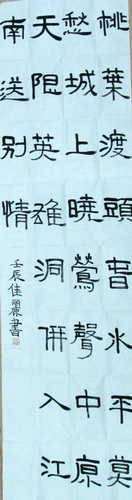 桃葉渡頭旾水平莫
愁城上曉鶯聲中原
天限英雄洞併入江
南送別情
壬辰佳書